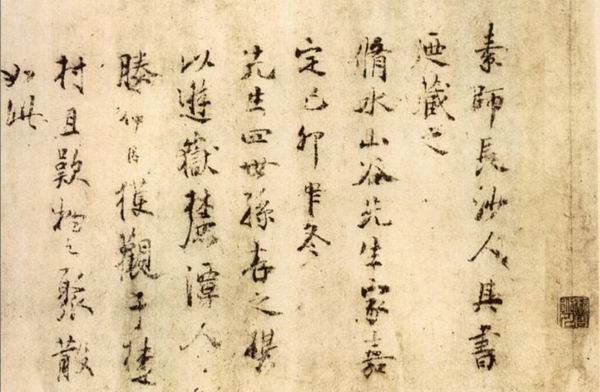 素師長沙人其書
迺藏之
脩水山谷先生家嘉
定己卯中冬
先生四世孫存之携
以遊嶽麓潭人
滕仲因獲觀于楚
村且歎物之聚散
如此